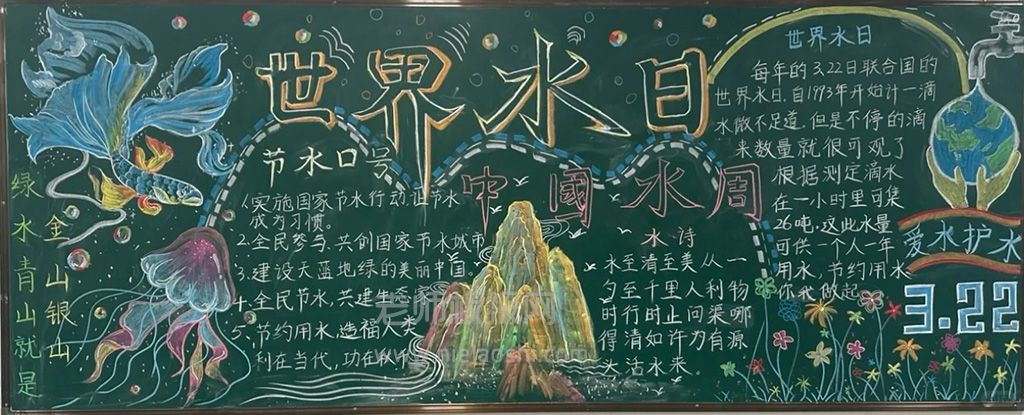 世界水日
中國水周
绿水青山就是
金山银山
节水口号
1.实施国家节水行动,让节水
成为习惯。
2.全民参与,共创国家节水城市
3.建设天蓝地绿的美丽中国。
4.全民节水,共建生态
5.节约用水,造福人类
利在当代,功在
水诗
水至清至美从一
勺至千里人利物
时行时止问渠哪
得清如许为有源
头活水来。
世界水日
每年的3.22日联合国的
世界水日.自1993年开始计一滴
水微不足道.但是不停的滴
来数量就很可观了
根据测定滴水
在一小时里可集
26吨.这些水量
可供一个人一年
用水,节约用水
做起
爱水护水
3.22
老师板报网